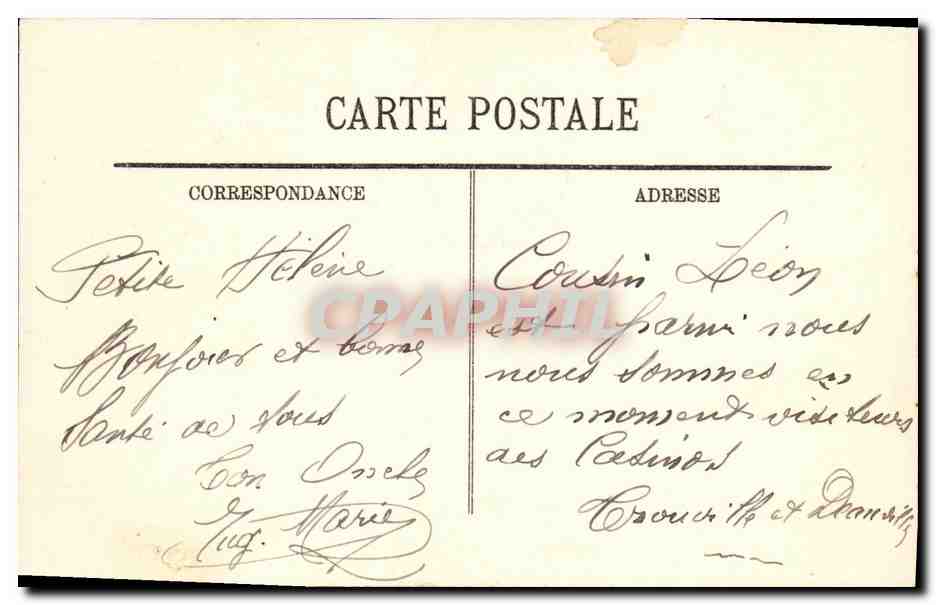 CARTE POSTALE
CORRESPONDANCE
Petite Hélène
Bonjour et bonne
Santé de tous
Ton Oncle
Eug. Marie
ADRESSE
Cousin Léon
est parmi nous
nous sommes en
ce moment visiteurs
des Casinos
Trouville et Deauville
CPAPHIL